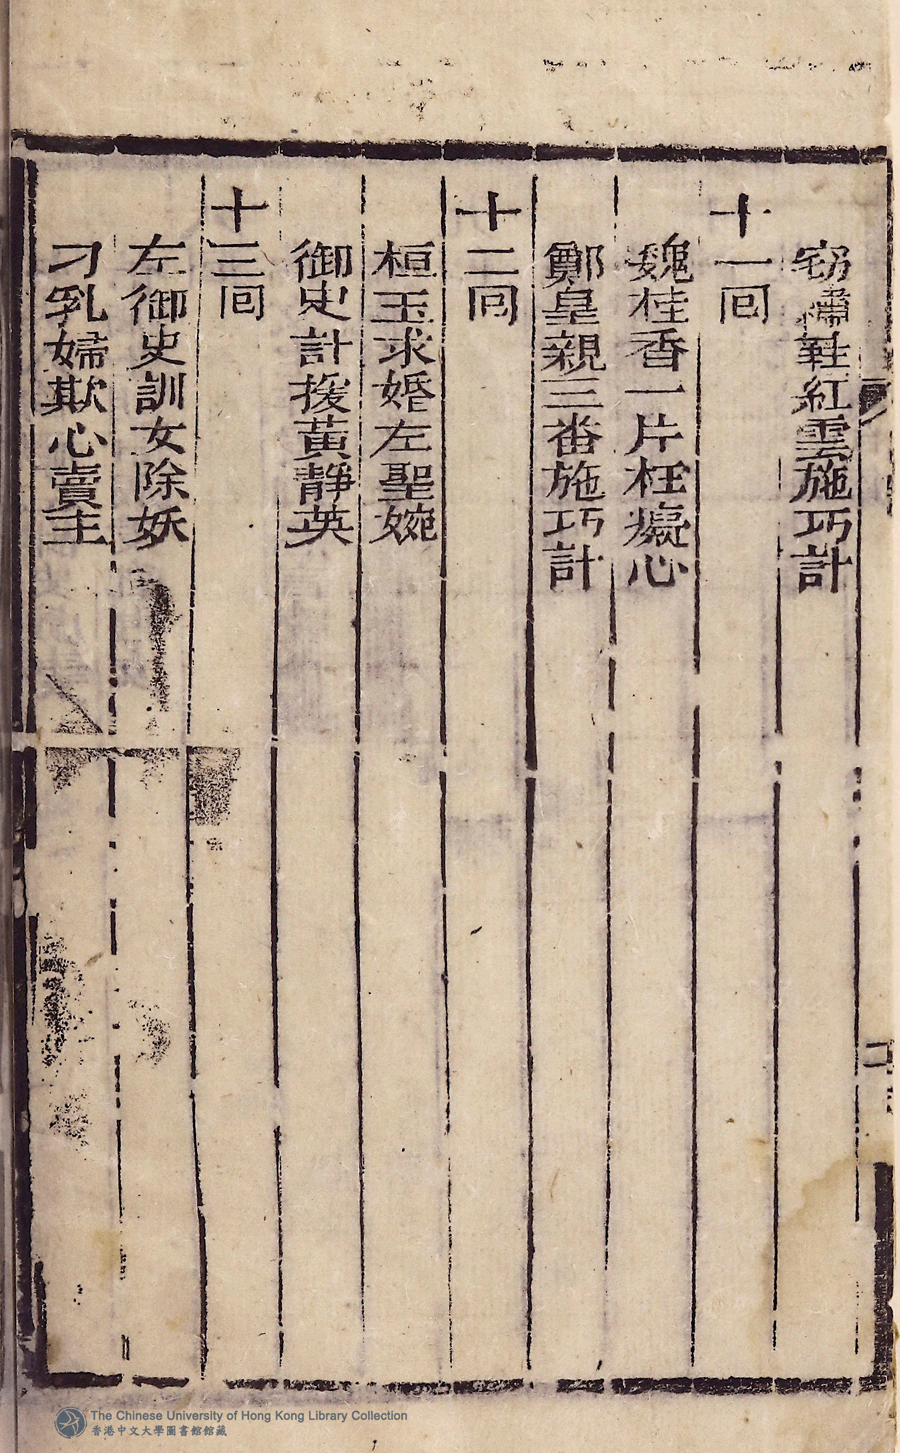 窃繡鞋紅雲施巧計
十一囘
魏桂香一片枉癡心
鄭皇親三番施巧計
十二囘
桓玉求婚左聖婉
御史計援黃靜英
十三囘
左御史訓女除妖
刁乳婦欺心賣主
The Chinese University of Hong Kong Library Collection
香港中文大學圖書館館藏